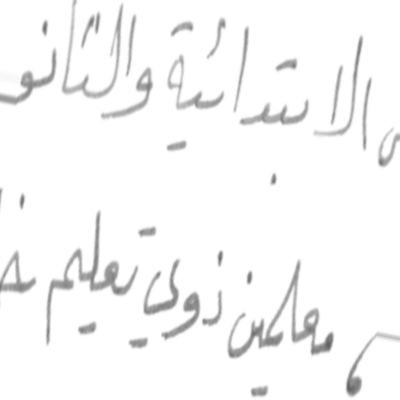 الابتدائية والثانو
معلمين ذوي تعليم